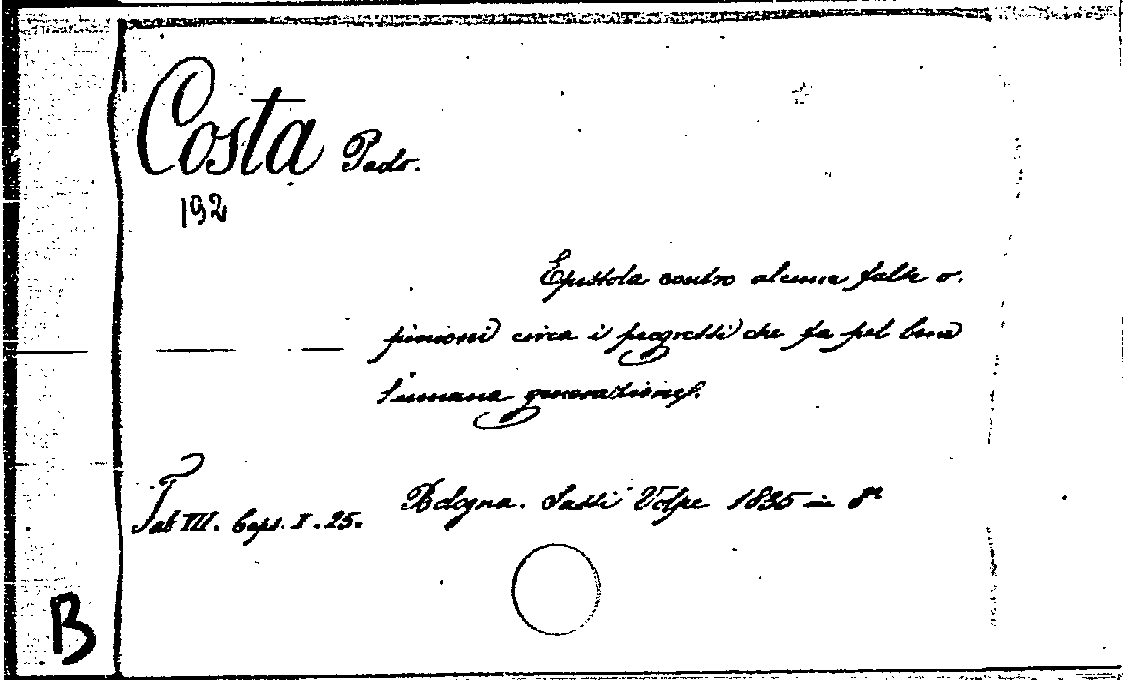 Costa Pado.
192
Epistola contro alcune false o.
pinioni circa i progressi che fa pel bene
l'umana generazione.
Tab III. Caps. I. 25.
Bologna. Sassi Volpe 1835 in 8°
B